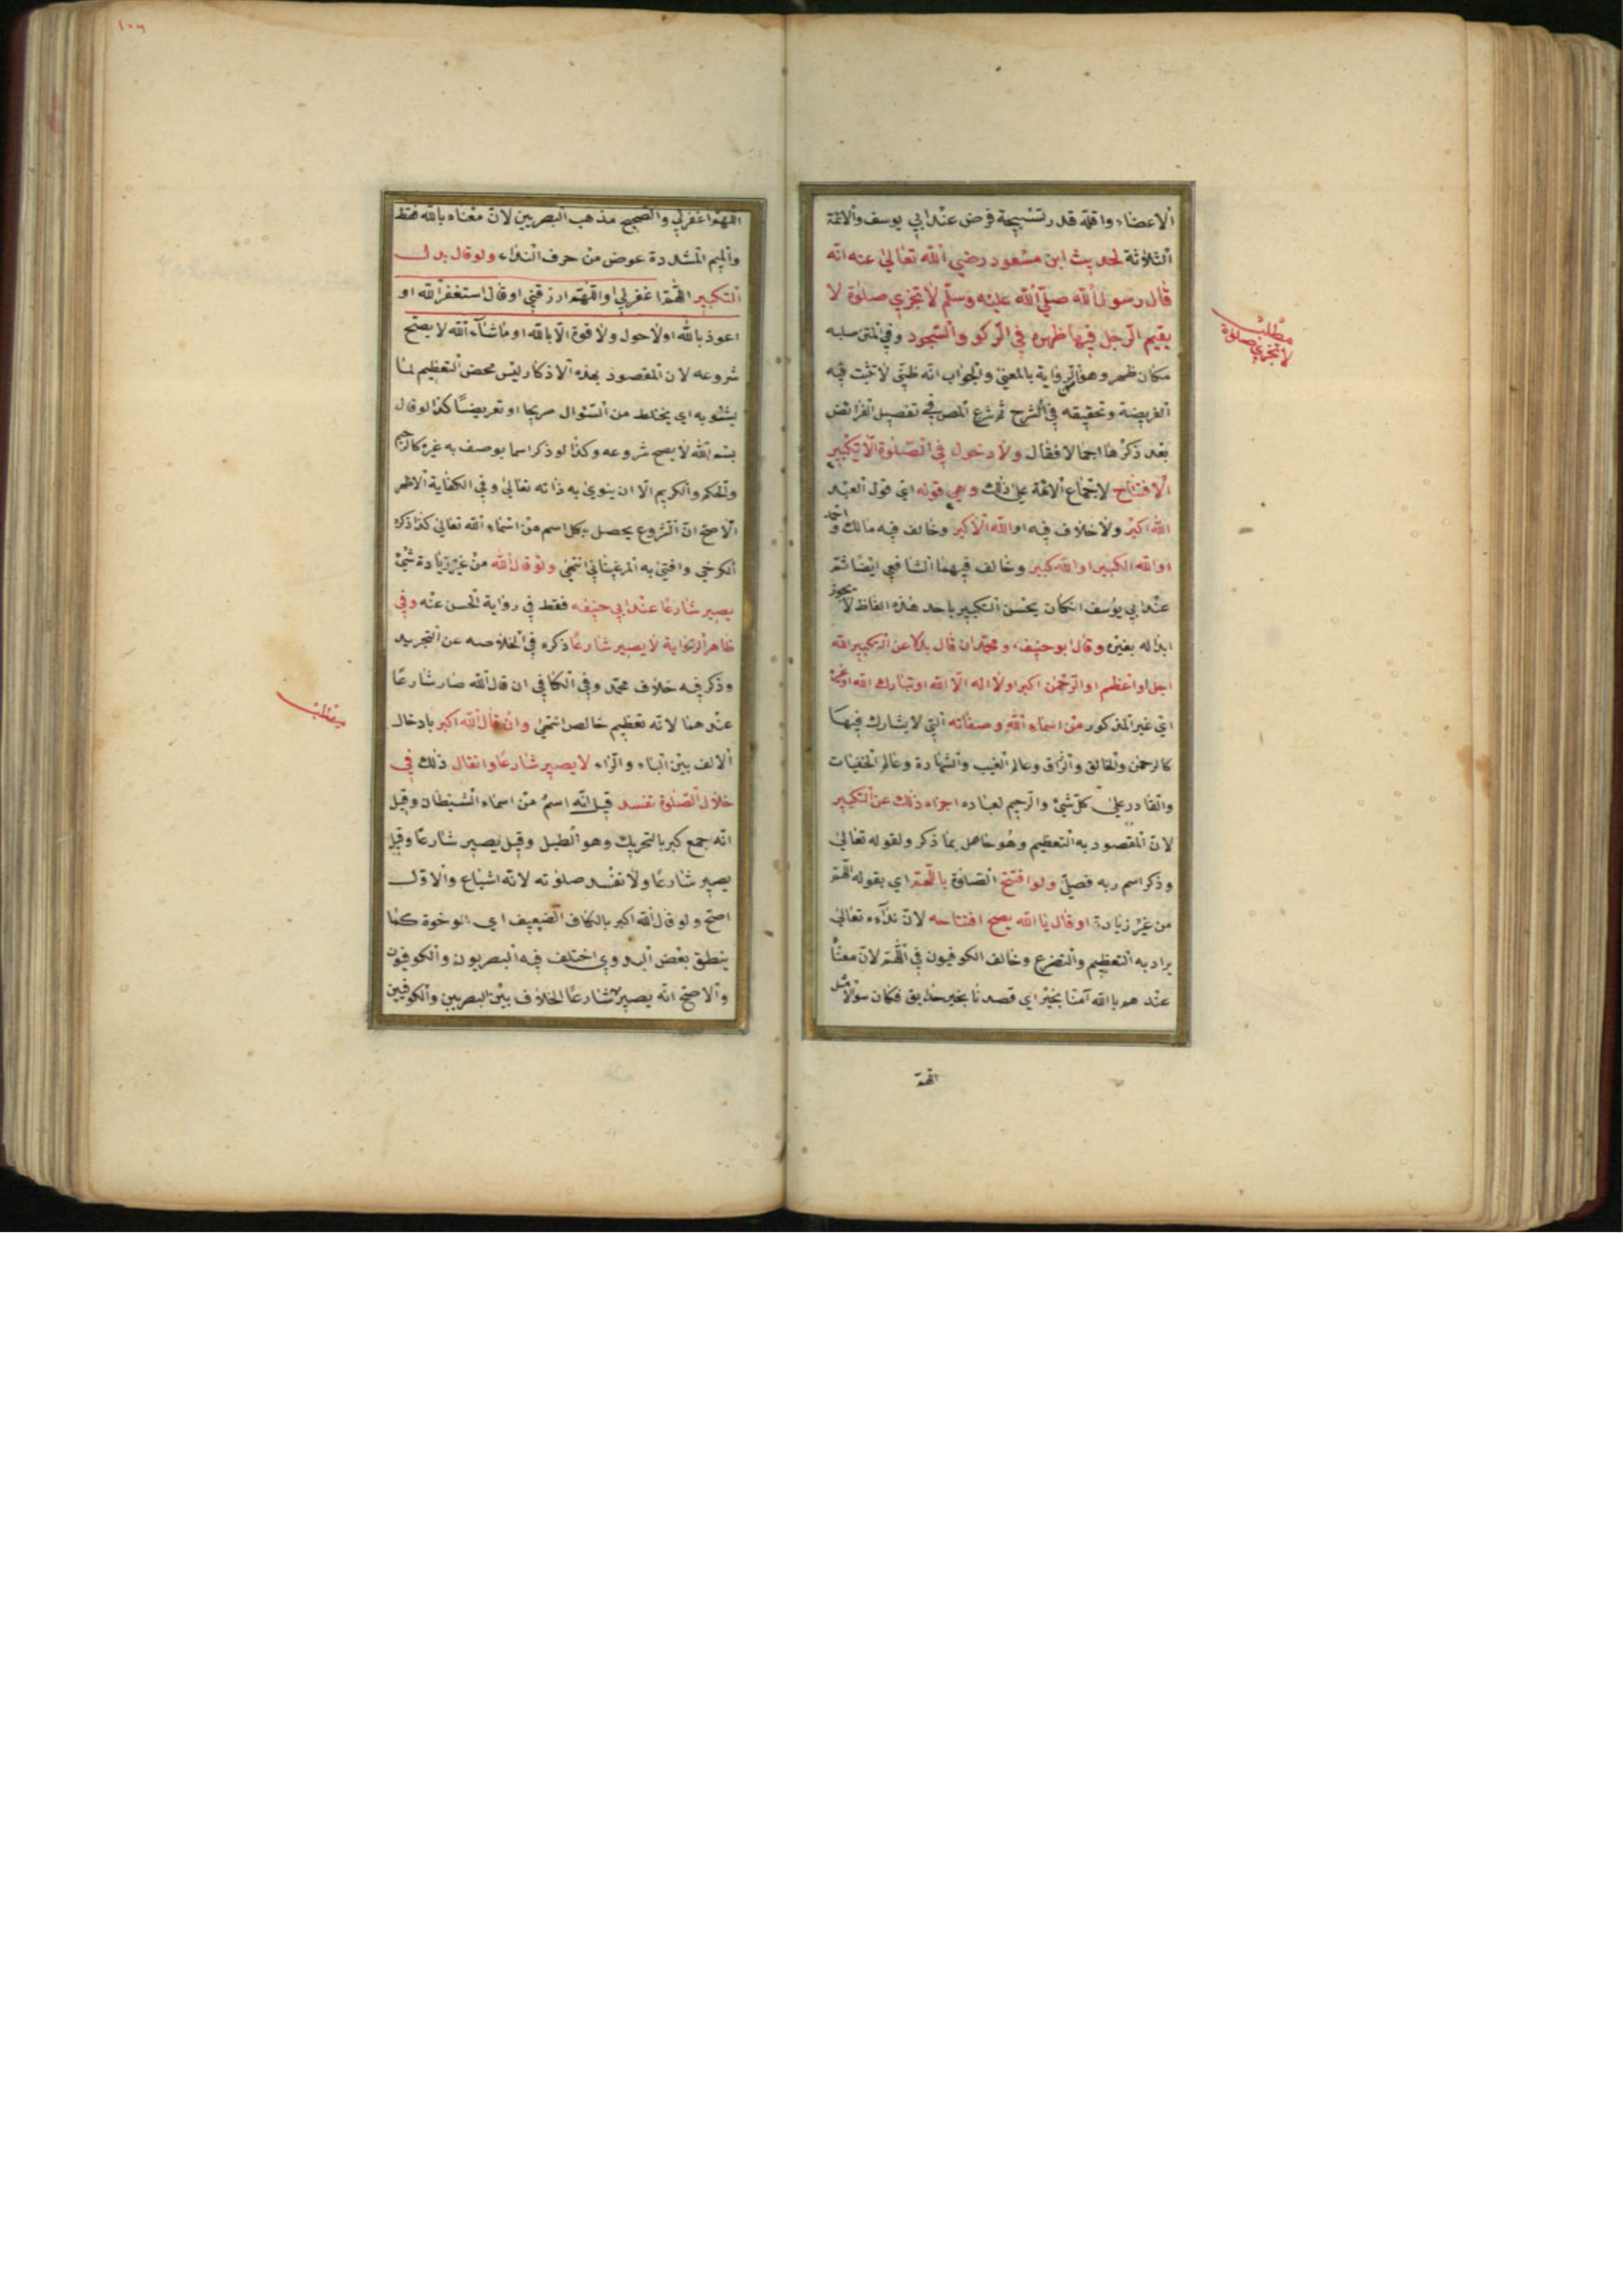 الاعضاء واقله قدر تسبيحة فرض عند ابي يوسف والائمة
الثلاثة لحديث ابن مسعود رضي الله تعالى عنه انه
قال رسول الله صلى الله عليه وسلم لا تجزي صلوة لا
يقيم الرجل فيها ظهره في الركوع والسجود وفي المتن صلبه
مكان ظهر وهو الرواية بالمعنى والجواب انه ظني لا تثبت فيه
الفريضة وتحقيقه في الشرح ثم شرع المص في تفصيل الفرائض
بعد ذكرها اجمالا فقال ولا دخول في الصلوة الا بتكبير
الافتتاح لاجتماع الائمة على ذلك وهي قوله اي قول العبد
الله اكبر ولا خلاف فيه او الله الاكبر وخالف فيه مالك واحمد
او الله الكبير او الله كبير وخالف فيهما الشافعي ايضا ثم
عند ابي يوسف انكان يحسن التكبير باحد هذه الفاظ لا يجوز
ابداله بغيره وقال ابو حنيفه ومحمد ان قال بدلا عن التكبير الله
اجل او اعظم او الرحمن اكبر او لا اله الا الله او تبارك الله او غيره
اي غير المذكور من اسماء الله وصفاته التي لا يشارك فيها
كالرحمن والخالق والرزاق وعالم الغيب والشهادة وعالم الخفيات
والقادر على كل شئ والرحيم لعباده اجزاه ذلك عن التكبير
لان المقصود به التعظيم وهو حاصل بما ذكر ولقوله تعالى
وذكر اسم ربه فصلى ولو افتتح الصلوة باللهم اي بقوله اللهم
من غير زيادة او قال يا الله يصح افتتاحه لان نداءه تعالى
يراد به التعظيم والتضرع وخالف الكوفيون في اللهم لان معناه
عندهم يا الله آمنا بخير اي قصدنا بخير فكان سؤالا مثل
اللهم
مطلب
لا تجزي صلوة
١٠٦
اللهم اغفر لي والصحيح مذهب البصريين لان معناه يا الله فقط
والميم المشددة عوض من حرف النداء ولو قال بدل
التكبير اللهم اغفر لي او اللهم ارزقني او قال استغفر الله او
اعوذ بالله او لا حول ولا قوة الا بالله او ما شاء الله لا يصح
شروعه لان المقصود بهذه الاذكار ليس محض التعظيم لما
يشوبه اي يختلط من السئوال صريحا او تعريضا كذا لو قال
بسم الله لا يصح شروعه وكذا لو ذكر اسما يوصف به غيره كالرحيم
والحكم والكريم الا ان ينوي به ذاته تعالى وفي الكفاية الاظهر
الاصح ان الشروع يحصل بكل اسم من اسماء الله تعالى كذا ذكره
الكرخي وافتى به المرغيناني انتهى ولو قال الله من غير زيادة شئ
يصير شارعا عند ابي حنيفه فقط في رواية الحسن عنه وفي
ظاهر الرواية لا يصير شارعا ذكره في الخلاصه عن التجريد
وذكر فيه خلاف محمد وفي الكافي ان قال الله صار شارعا
عندهما لانه تعظيم خالص انتهى وان قال الله اكبر بادخال
الالف بين الباء والراء لا يصير شارعا وانقال ذلك في
خلال الصلوة تفسد قيل انه اسم من اسماء الشيطان وقيل
انه جمع كبر بالتحريك وهو الطبل وقيل يصير شارعا وقيل
يصير شارعا ولا تفسد صلوته لانه اشباع والاول
اصح ولو قال الله اكبر بالكاف الضعيف اي الوخوة كما
ينطق بعض البدوي اختلف فيه البصريون والكوفيون
والاصح انه يصير شارعا الخلاف بين البصريين والكوفيين
مطلب